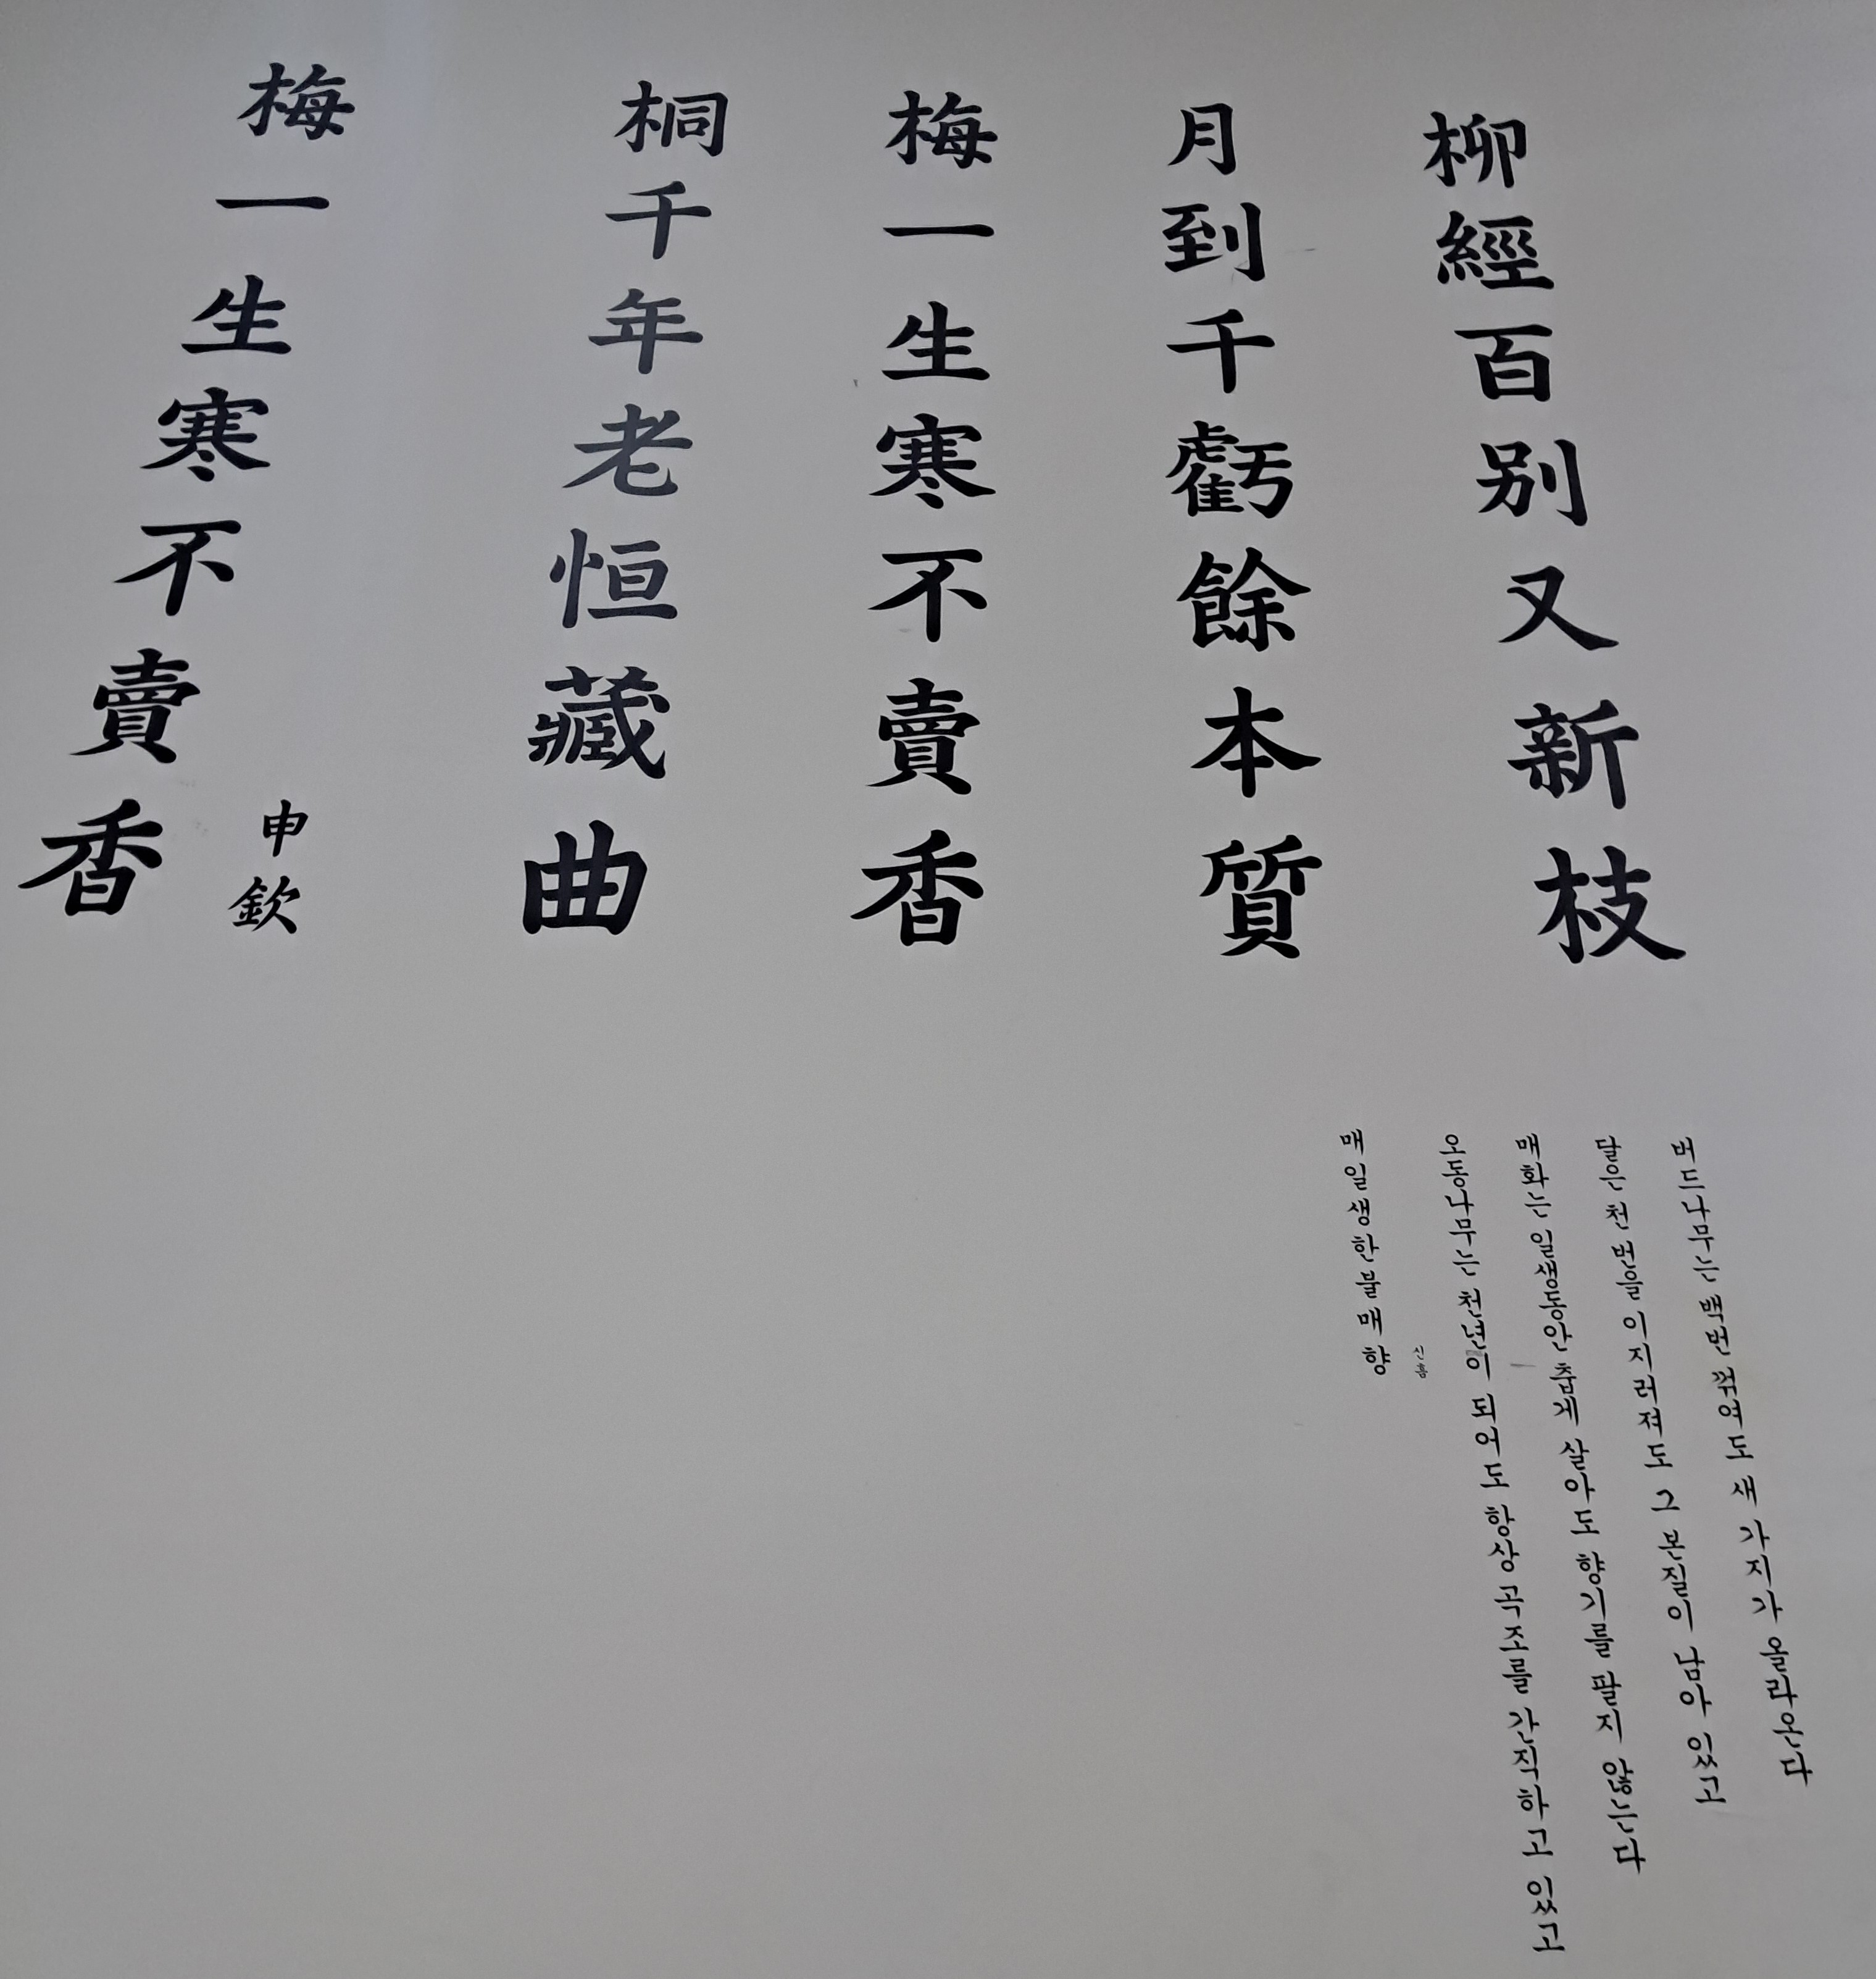 梅一生寒不賣香
申欽
桐千年老恒藏曲
梅一生寒不賣香
月到千虧餘本質
柳經百別又新枝
매일생한불매향
신흠
오동나무는 천년이 되어도 항상 곡조를 간직하고 있고
매화는 일생동안 춥게 살아도 향기를 팔지 않는다
달은 천 번을 이지러져도 그 본질이 남아 있고
버드나무는 백번 꺾여도 새 가지가 올라온다